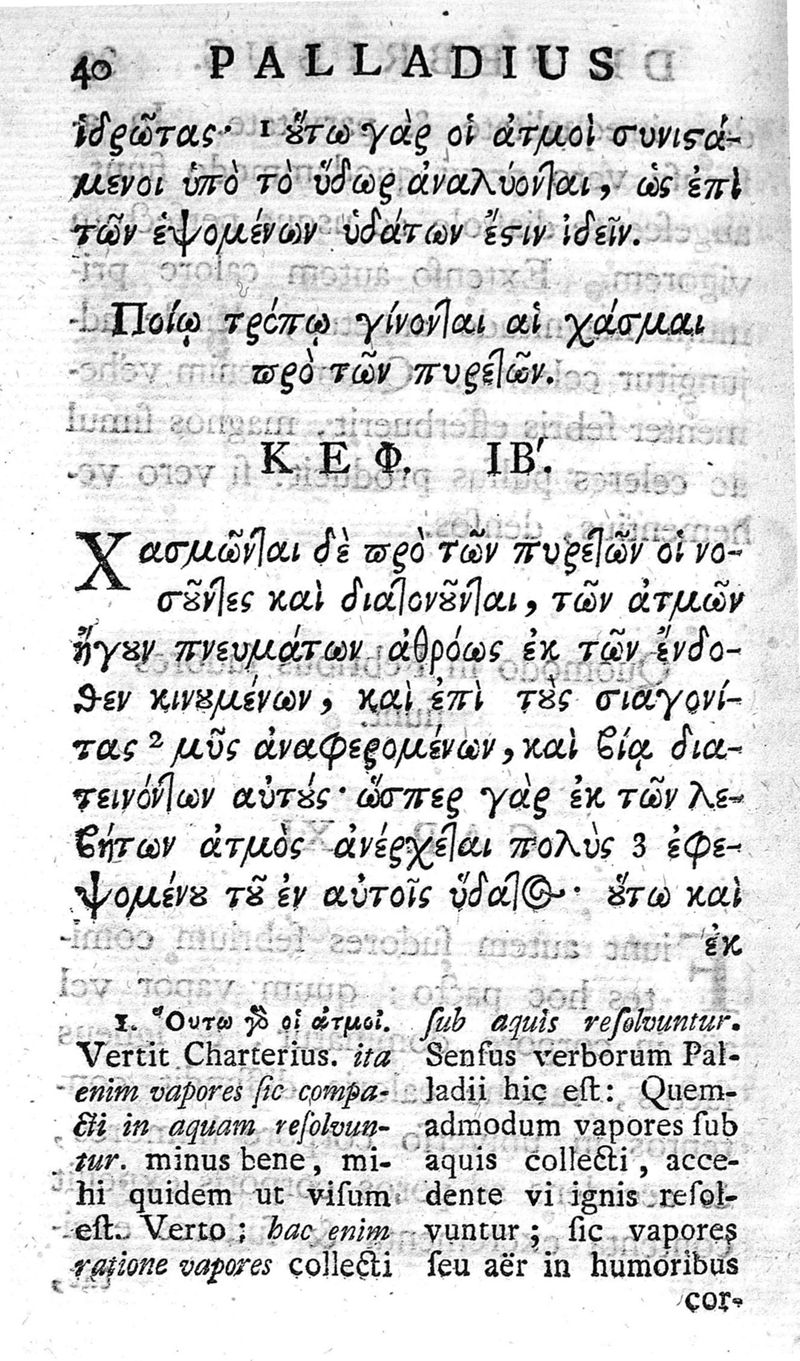 40 PALLADIUS
ἱδρῶτας· 1 ὕτω γὰρ οἱ ἀτμοὶ συνιστά-
μενοι ὑπὸ τὸ ὕδωρ ἀναλύονται, ὡς ἐπὶ
τῶν ἑψομένων ὑδάτων ἔστιν ἰδεῖν.
Ποίῳ τρόπῳ γίνονται αἱ χάσμαι
πρὸ τῶν πυρετῶν.
ΚΕΦ. ΙΒ'.
Χασμῶνται δὲ πρὸ τῶν πυρετῶν οἱ νο-
σοῦντες καὶ διατονοῦνται, τῶν ἀτμῶν
ἤγουν πνευμάτων ἀθρόως ἐκ τῶν ἔνδο-
θεν κινουμένων, καὶ ἐπὶ τοὺς σιαγονί-
τας 2 μῦς ἀναφερομένων, καὶ βίᾳ δια-
τεινόντων αὐτούς· ὥσπερ γὰρ ἐκ τῶν λε-
βήτων ἀτμὸς ἀνέρχεται πολὺς 3 ἐφε-
ψομένου τοῦ ἐν αὐτοῖς ὕδατος· οὕτω καὶ
ἐκ
1. Ὅυτω γὸ οἱ ἀτμοὶ.
Vertit Charterius. ita
enim vapores ſic compa-
cti in aquam reſolvun-
tur. minus bene, mi-
hi quidem ut viſum
eſt. Verto; hac enim
ratione vapores collecti
ſub aquis reſolvuntur.
Senſus verborum Pal-
ladii hic eſt: Quem-
admodum vapores ſub
aquis collecti, acce-
dente vi ignis reſol-
vuntur; ſic vapores
ſeu aër in humoribus
cor-